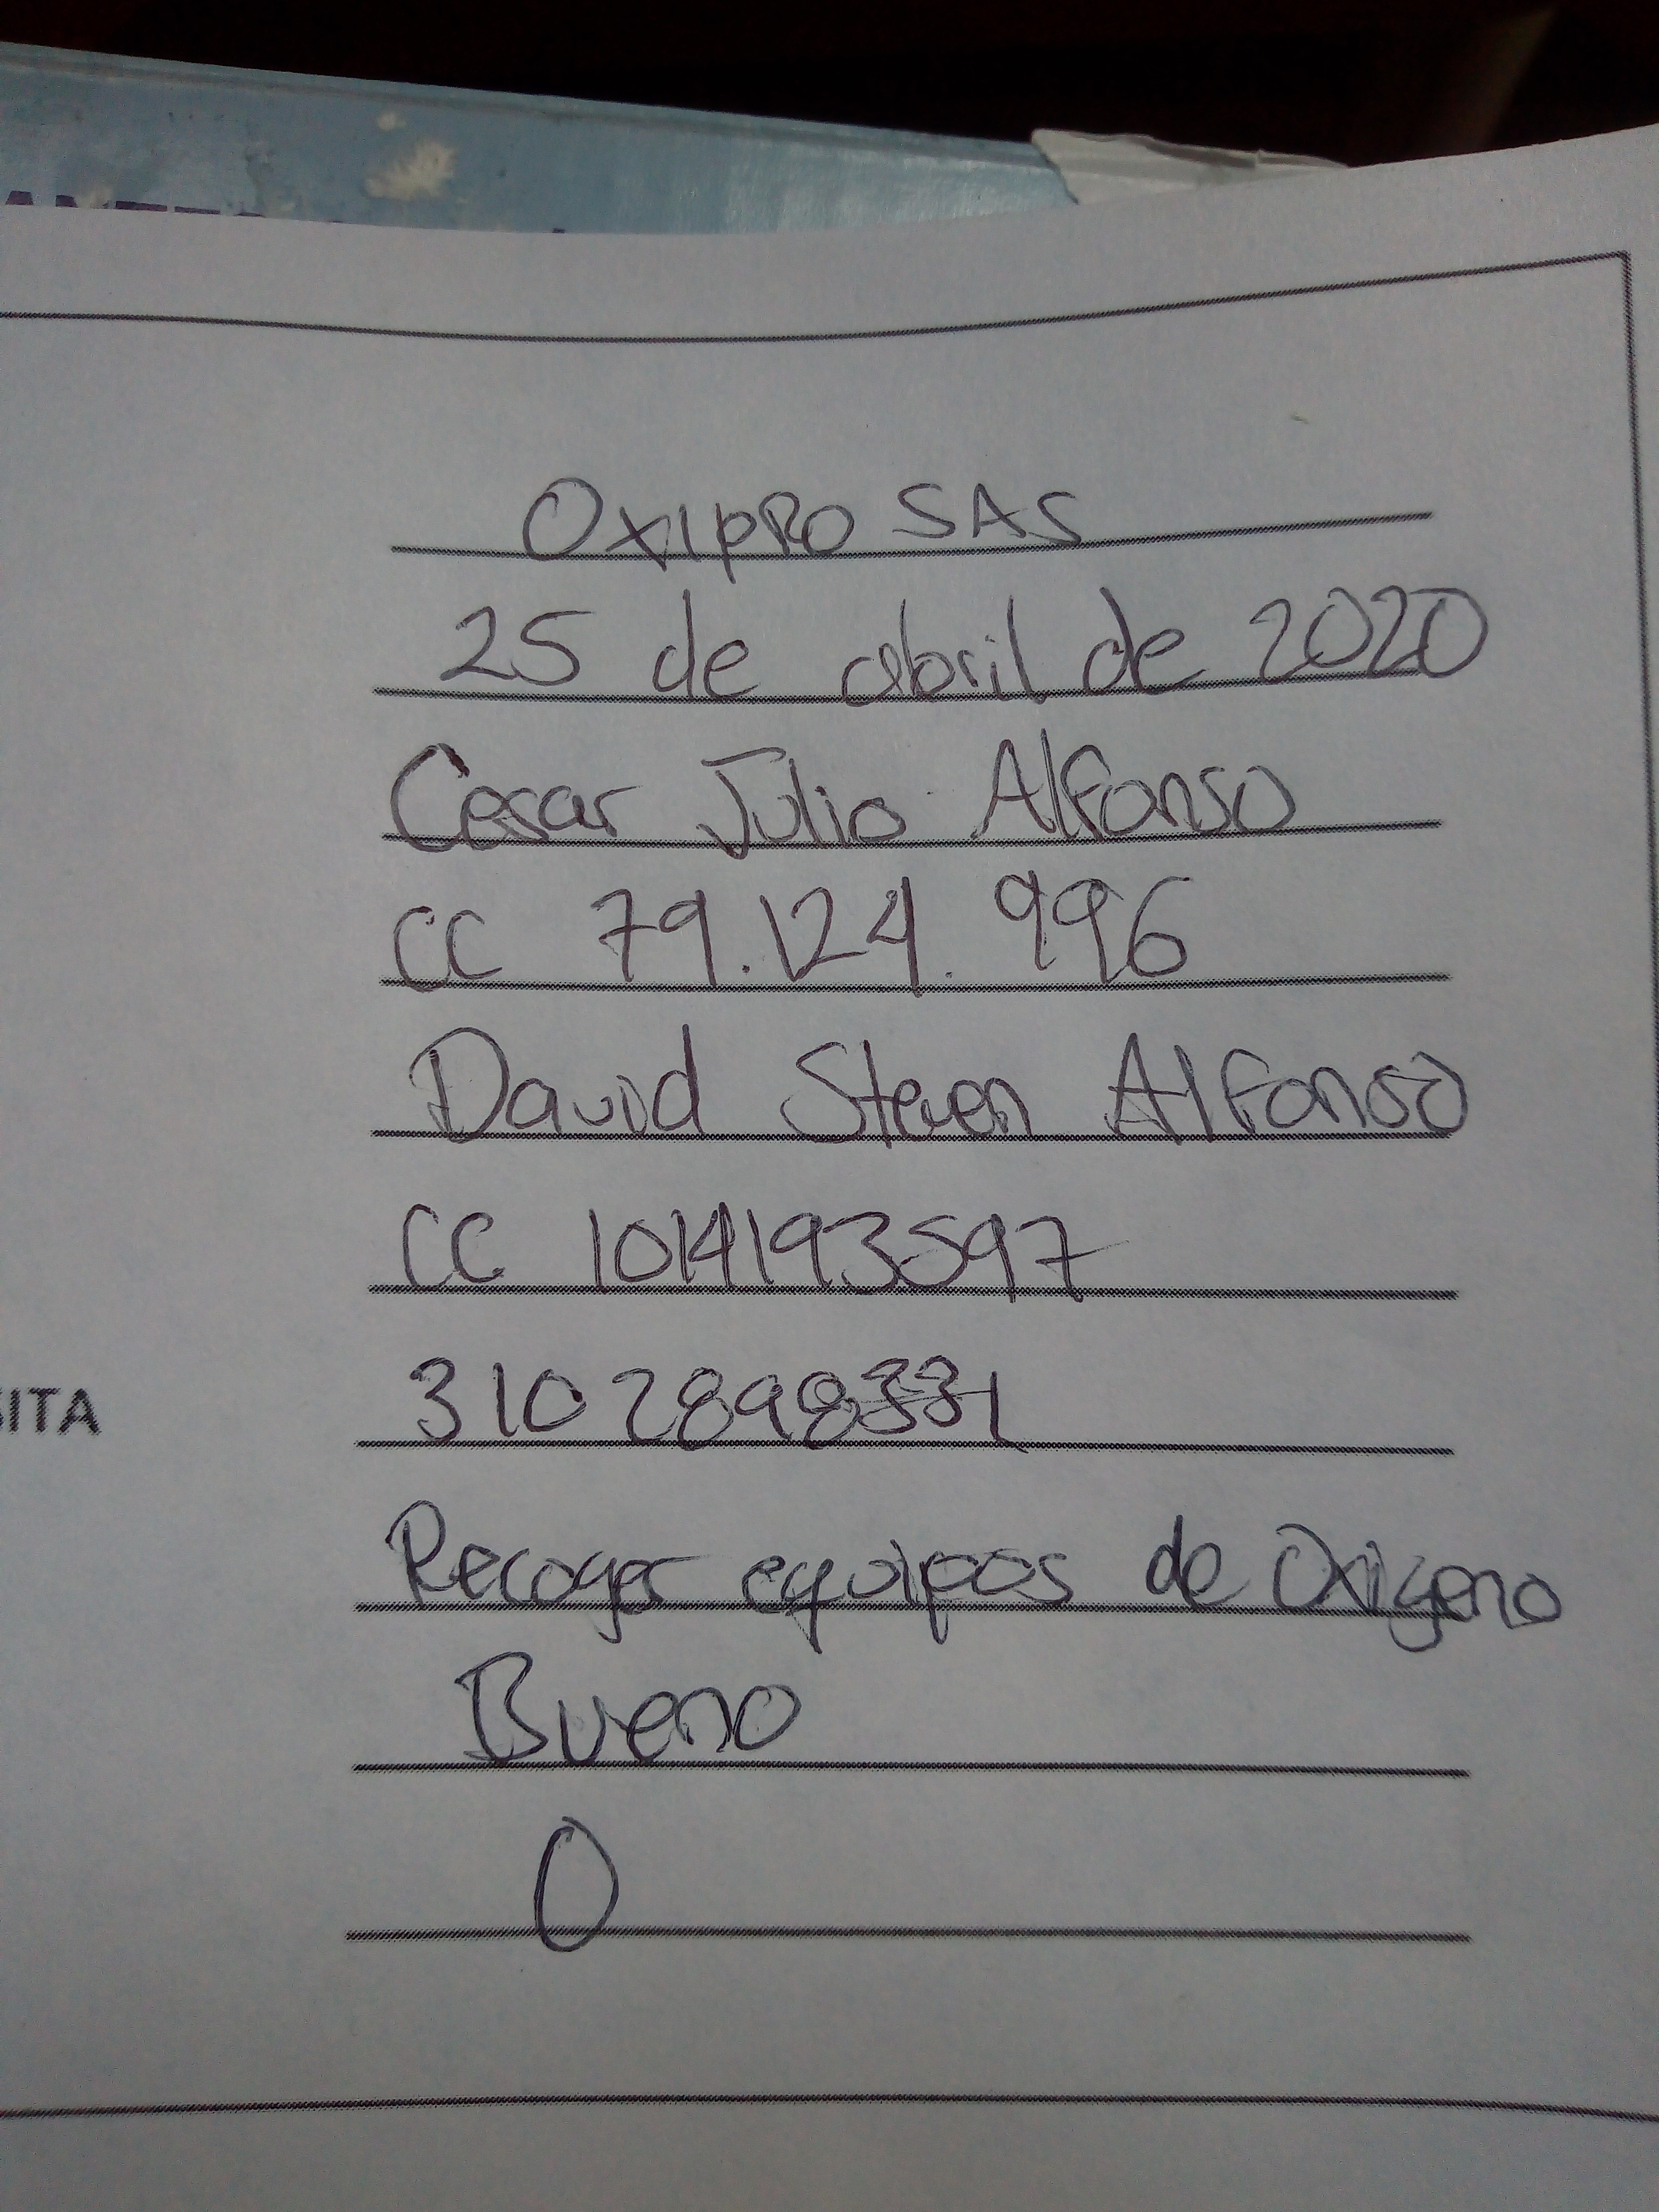 OXIPRO SAS
25 de abril de 2020
Cesar Julio Alfonso
CC 79.124.996
David Steven Alfonso
CC 1014193597
SITA
310 2898331
Recoger equipos de Oxigeno
Bueno
0